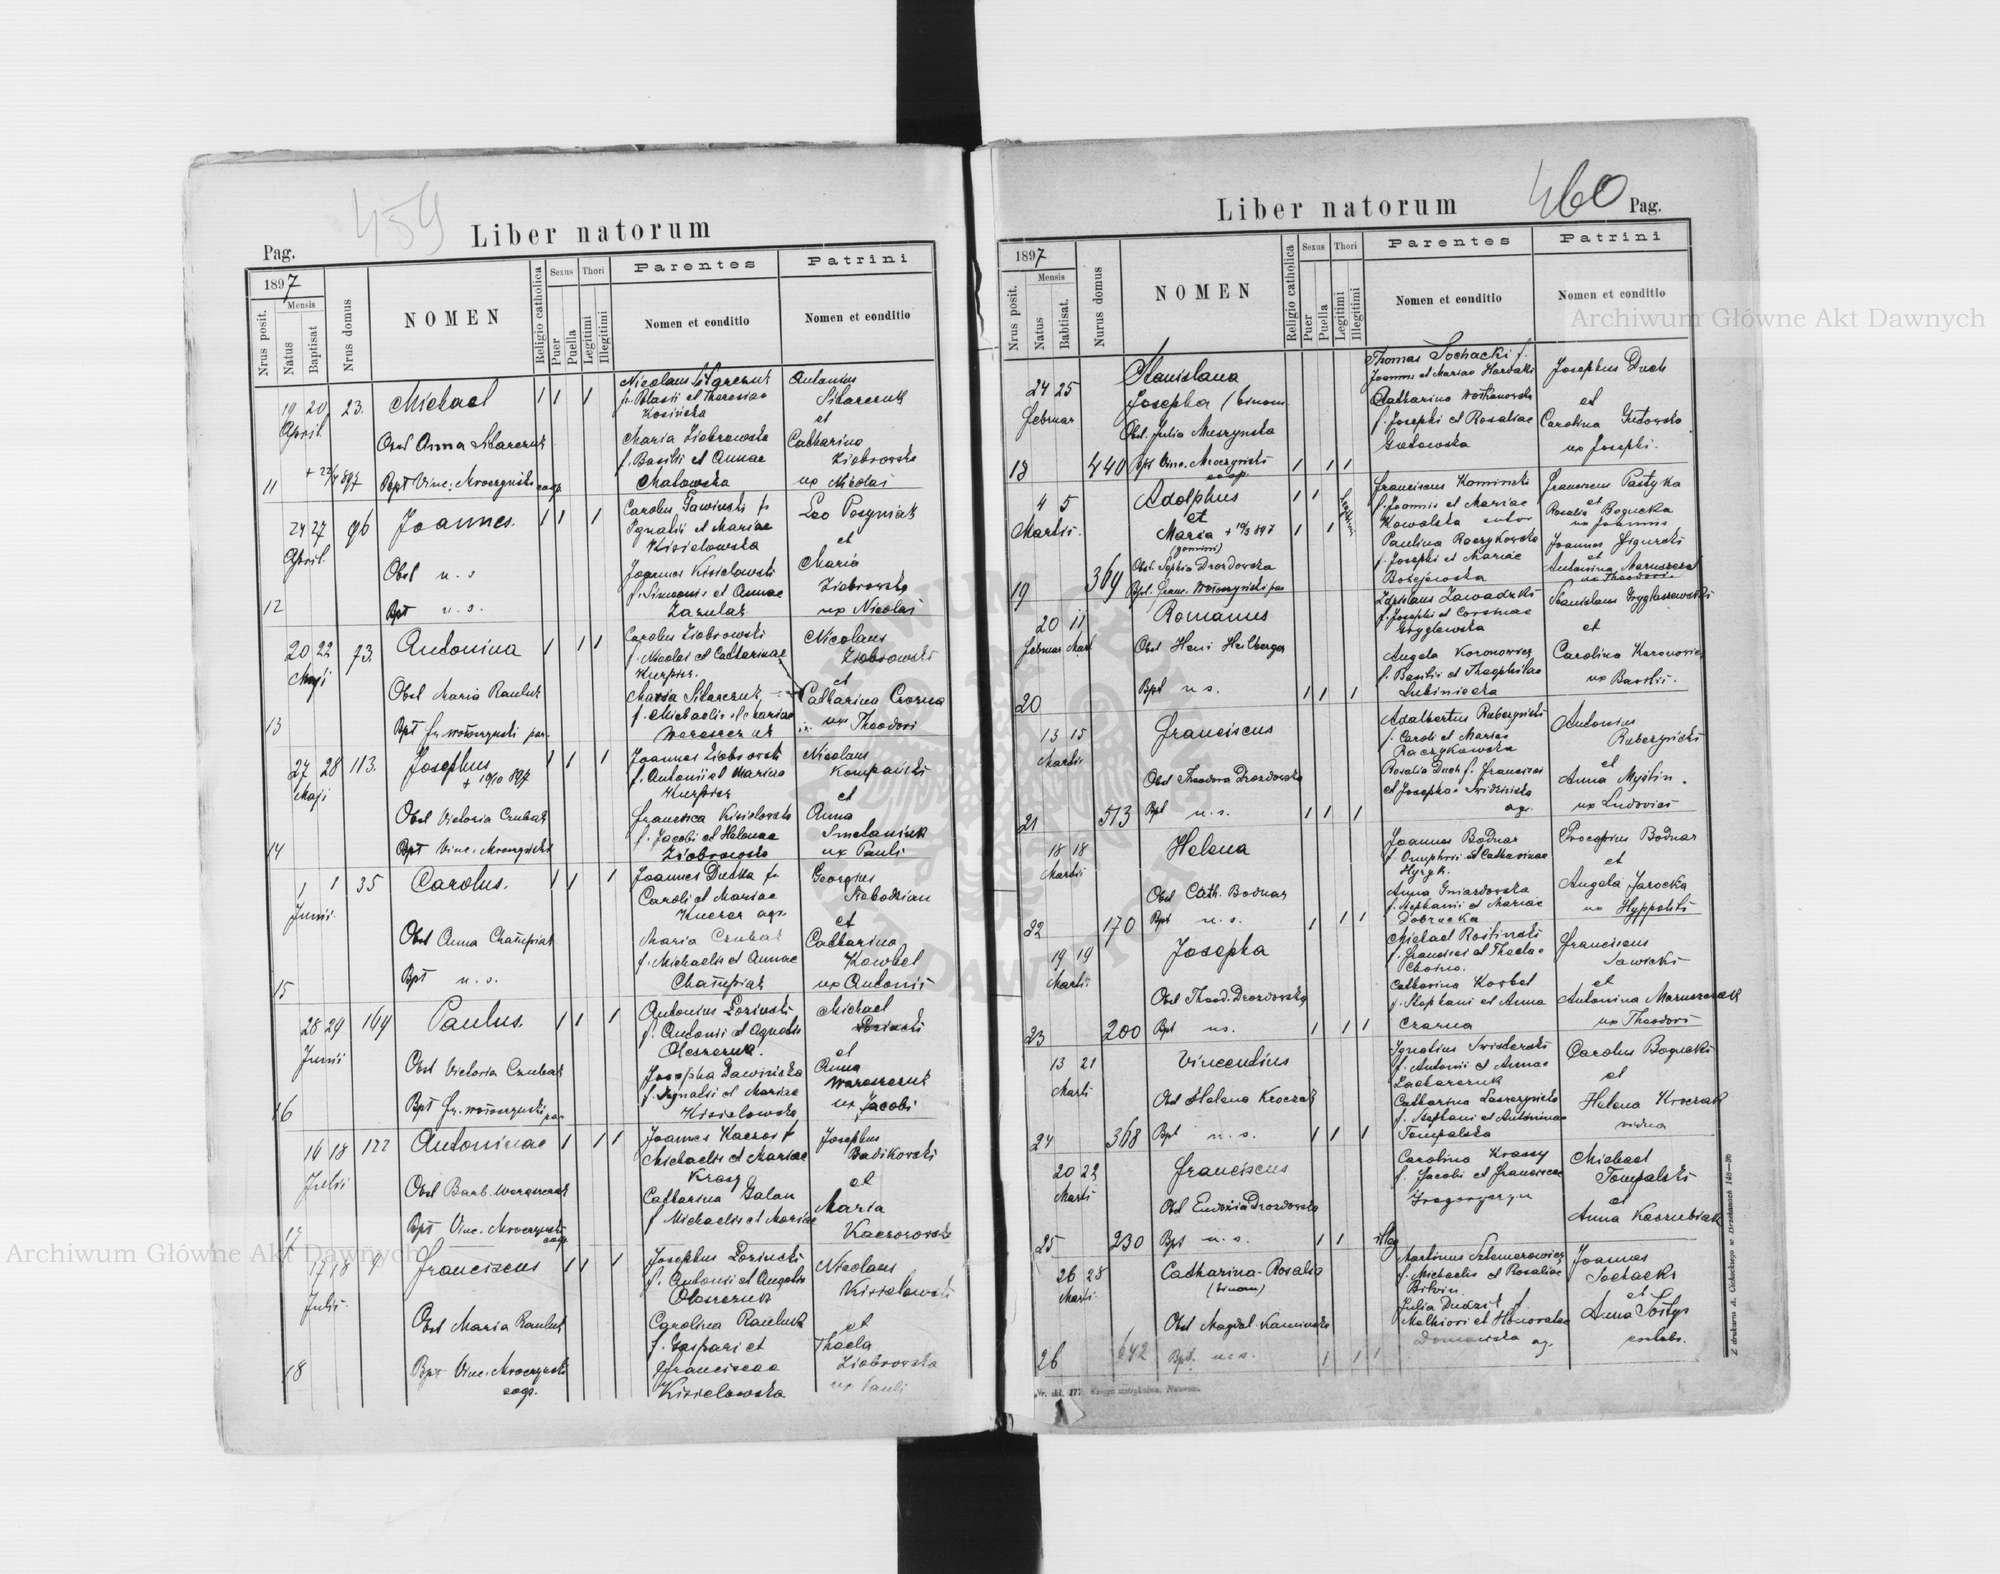 459
Liber natorum
Pag.
1897
Mensis
Nrus posit.
Natus
Baptisat
Nrus domus
NOMEN
Religio catholica
Sexus
Puer
Puella
Thori
Legitimi
Illegitimi
Parentes
Nomen et conditio
Patrini
Nomen et conditio
11
19 20
April.
23.
Michael
1 1 1
Obst Anna Sitarczuk
Bpt Vinc. Mroczyński coop
Nicolaus Sitarczuk
f. Blasii et Theresiae
Kosińska
Maria Ziobrowska
f. Basilii et Annae
Antonius
Sitarczuk
et
Catharina
Ziobrowska
ux Nicolai
12
24 27
April.
96
Joannes.
1 1 1
Obst u. s
Bpt u. s.
Carolus Gawiński f.
Ignatii et Mariae
Kisielowska
Joannes Kisielowski
f. Simeonis et Annae
Leo Posyniak
et
Maria
Ziobrowska
ux Nicolai
13
20 22
Maji
73.
Antonina
1 1 1
Obst Maria Rauluk
Bpt fr. Wołoszyński par.
Carolus Ziobrowski
f. Nicolai et Catharinae
Maria Sitarczuk
f. Michaelis et Mariae
Nicolaus
Ziobrowski
et
Catharina Czorna
ux Theodori
14
27 28
Maji
113.
Josephus
1 1 1
Obst Victoria Czubak
Bpt Vinc. Mroczyński
Joannes Ziobrowski
f. Antonii et Mariae
Francisca Kisielowska
f. Jacobi et Helenae
Ziobrowska
Nicolaus
Kompański
et
Anna
Smetaniuk
ux Pauli
15
1 1
Junii.
35
Carolus.
1 1 1
Bpt u. s.
Joannes Dudka f.
Caroli et Mariae
Maria Czubak
f. Michaelis et Annae
Georgius
et
Catharina
ux Antonii
16
28 29
Junii
149
Paulus.
1 1 1
Obst Victoria Czubak
Bpt fr. Wołoszyński par
Antonius Łoziński
f. Antonii et Agnetis
Oleszczuk.
Josepha Gawińska
f. Ignatii et Mariae
Kisielowska
Michael
Łoziński
et
Anna
ux Jacobi
17
16 18
Julii
122
Antoninae
1 1 1
Bpt Vinc. Mroczyński
coop.
Michaelis et Mariae
Krasy
Catharina Galan
f Michaelis et Mariae
Josephus
Badikowski
et
Maria
Kaczorowska
18
17 18
Julii.
9
Franciscus
1 1 1
Obst Maria Rauluk
Bpt Vinc. Mroczyński
coop.
Josephus Łoziński
f. Antonii et Angela
Oleszczuk
Carolina Rauluk
f. Gaspari et
Franciscae
Kisielowska
Nicolaus
Kisielowski
et
Thecla
Ziobrowska
ux Pauli
460
Liber natorum
Pag.
1897
Mensis
Nrus posit.
Natus
Babtisat.
Nurus domus
NOMEN
Religio catholica
Sexus
Puer
Puella
Thori
Legitimi
Illegitimi
Parentes
Nomen et conditio
Patrini
Nomen et conditio
18
24 25
Februar
440
Stanislava
Josepha (binom.
Obst. Julia Muszynska
Bpt Vinc. Mroczyński
coop.
1 1 1
Thomas Sochacki f.
Catharina
f. Josephi et Rosaliae
Gutowska
Josephus Duch
et
Carolina Gutowska
ux Josephi.
19
4 5
Martii.
369
Adolphus
et
Maria + 19/3 897
(gemini)
Obst. Sophia Drozdowska
Bpt. Franc. Wołoszyński par
1 1
1 1
Franciscus Kaminski
f. Joannis et Mariae
Kowalska sutor
Paulina Raczykowska
f. Josephi et Mariae
Bożejewska
Franciscus Pastyka
et
Rosalia Bogucka
ux Joannis
Joannes Figurski
et
ux Theodori
20
20 11
Februar Mart
Romanus
Obst Heni Heilberger
Bpt u s.
1 1 1
Zdzislaus Zawadzki
Gryglewska
Angela Koronowicz
f. Basilii et Theophilae
Lubiniecka
Stanislaus Gryglaszewski
et
Carolina Koronowicz
ux Basilii.
21
13 15
Martii
513
Franciscus
Obst Theodora Drozdowska
Bpt u. s.
1 1 1
Adalbertus Ruberzyński
f. Caroli et Mariae
Raczykowska
Rosalia Duch f. Francisci
et Josephae Swidzińska
agr.
Antonius
Ruberzyński
et
Anna Myślin.
ux Ludovici
22
18 18
Martii
170
Helena
Obst Cath. Bodnar
Bpt u. s.
1 1 1
Joannes Bodnar
f. Onuphrii et Catharinae
Hyzyk.
Anna Gniazdowska
f. Stephanii et Mariae
Dobrucka
Procopius Bodnar
et
Angela Jarocka
ux Hyppoliti
23
19 19
Martii
200
Josepha
Obst Theod. Drozdowska
Bpt us.
1 1 1
Michael Rosliński
f. Francisci et Theclae
Catharina Korbel
f. Stephani et Anna
Czarna
Franciscus
Sawicki
et
Antonina Maruszczak
ux Theodori
24
13 21
Marti
368
Vincentius
Obst Helena Kroczak
Bpt u. s.
1 1 1
Ignatius Swiderski
f. Antonii et Annae
Zacharczuk
f. Stephani et Antoninae
Tompalska
Carolus Bogucki
et
Helena Kroczak
vidua
25
20 22
Marti
230
Franciscus
Obst Eudoxia Drozdowska
Bpt u. s.
1 1 illeg
Carolina Krassy
f. Jacobi et Franciscae
Michael
Tompalski
et
Anna Kaczubiak
26
26 28
Marti
642
Catharina-Rosalia
(binom)
Obst Magdal. Kaminska
Bpt. u. s.
1 1 1
Martinus Szlemerowicz
f. Michaelis et Rosaliae
Bilwin.
Julia Dudzik f.
Melhiori et Honoratae
Domańska ag.
Joannes
Sochacki
et
Anna
Z drukarni A. Cichockiego w Brzeżanach 148—96
Archiwum Główne Akt Dawnych
Archiwum Główne Akt Dawnych